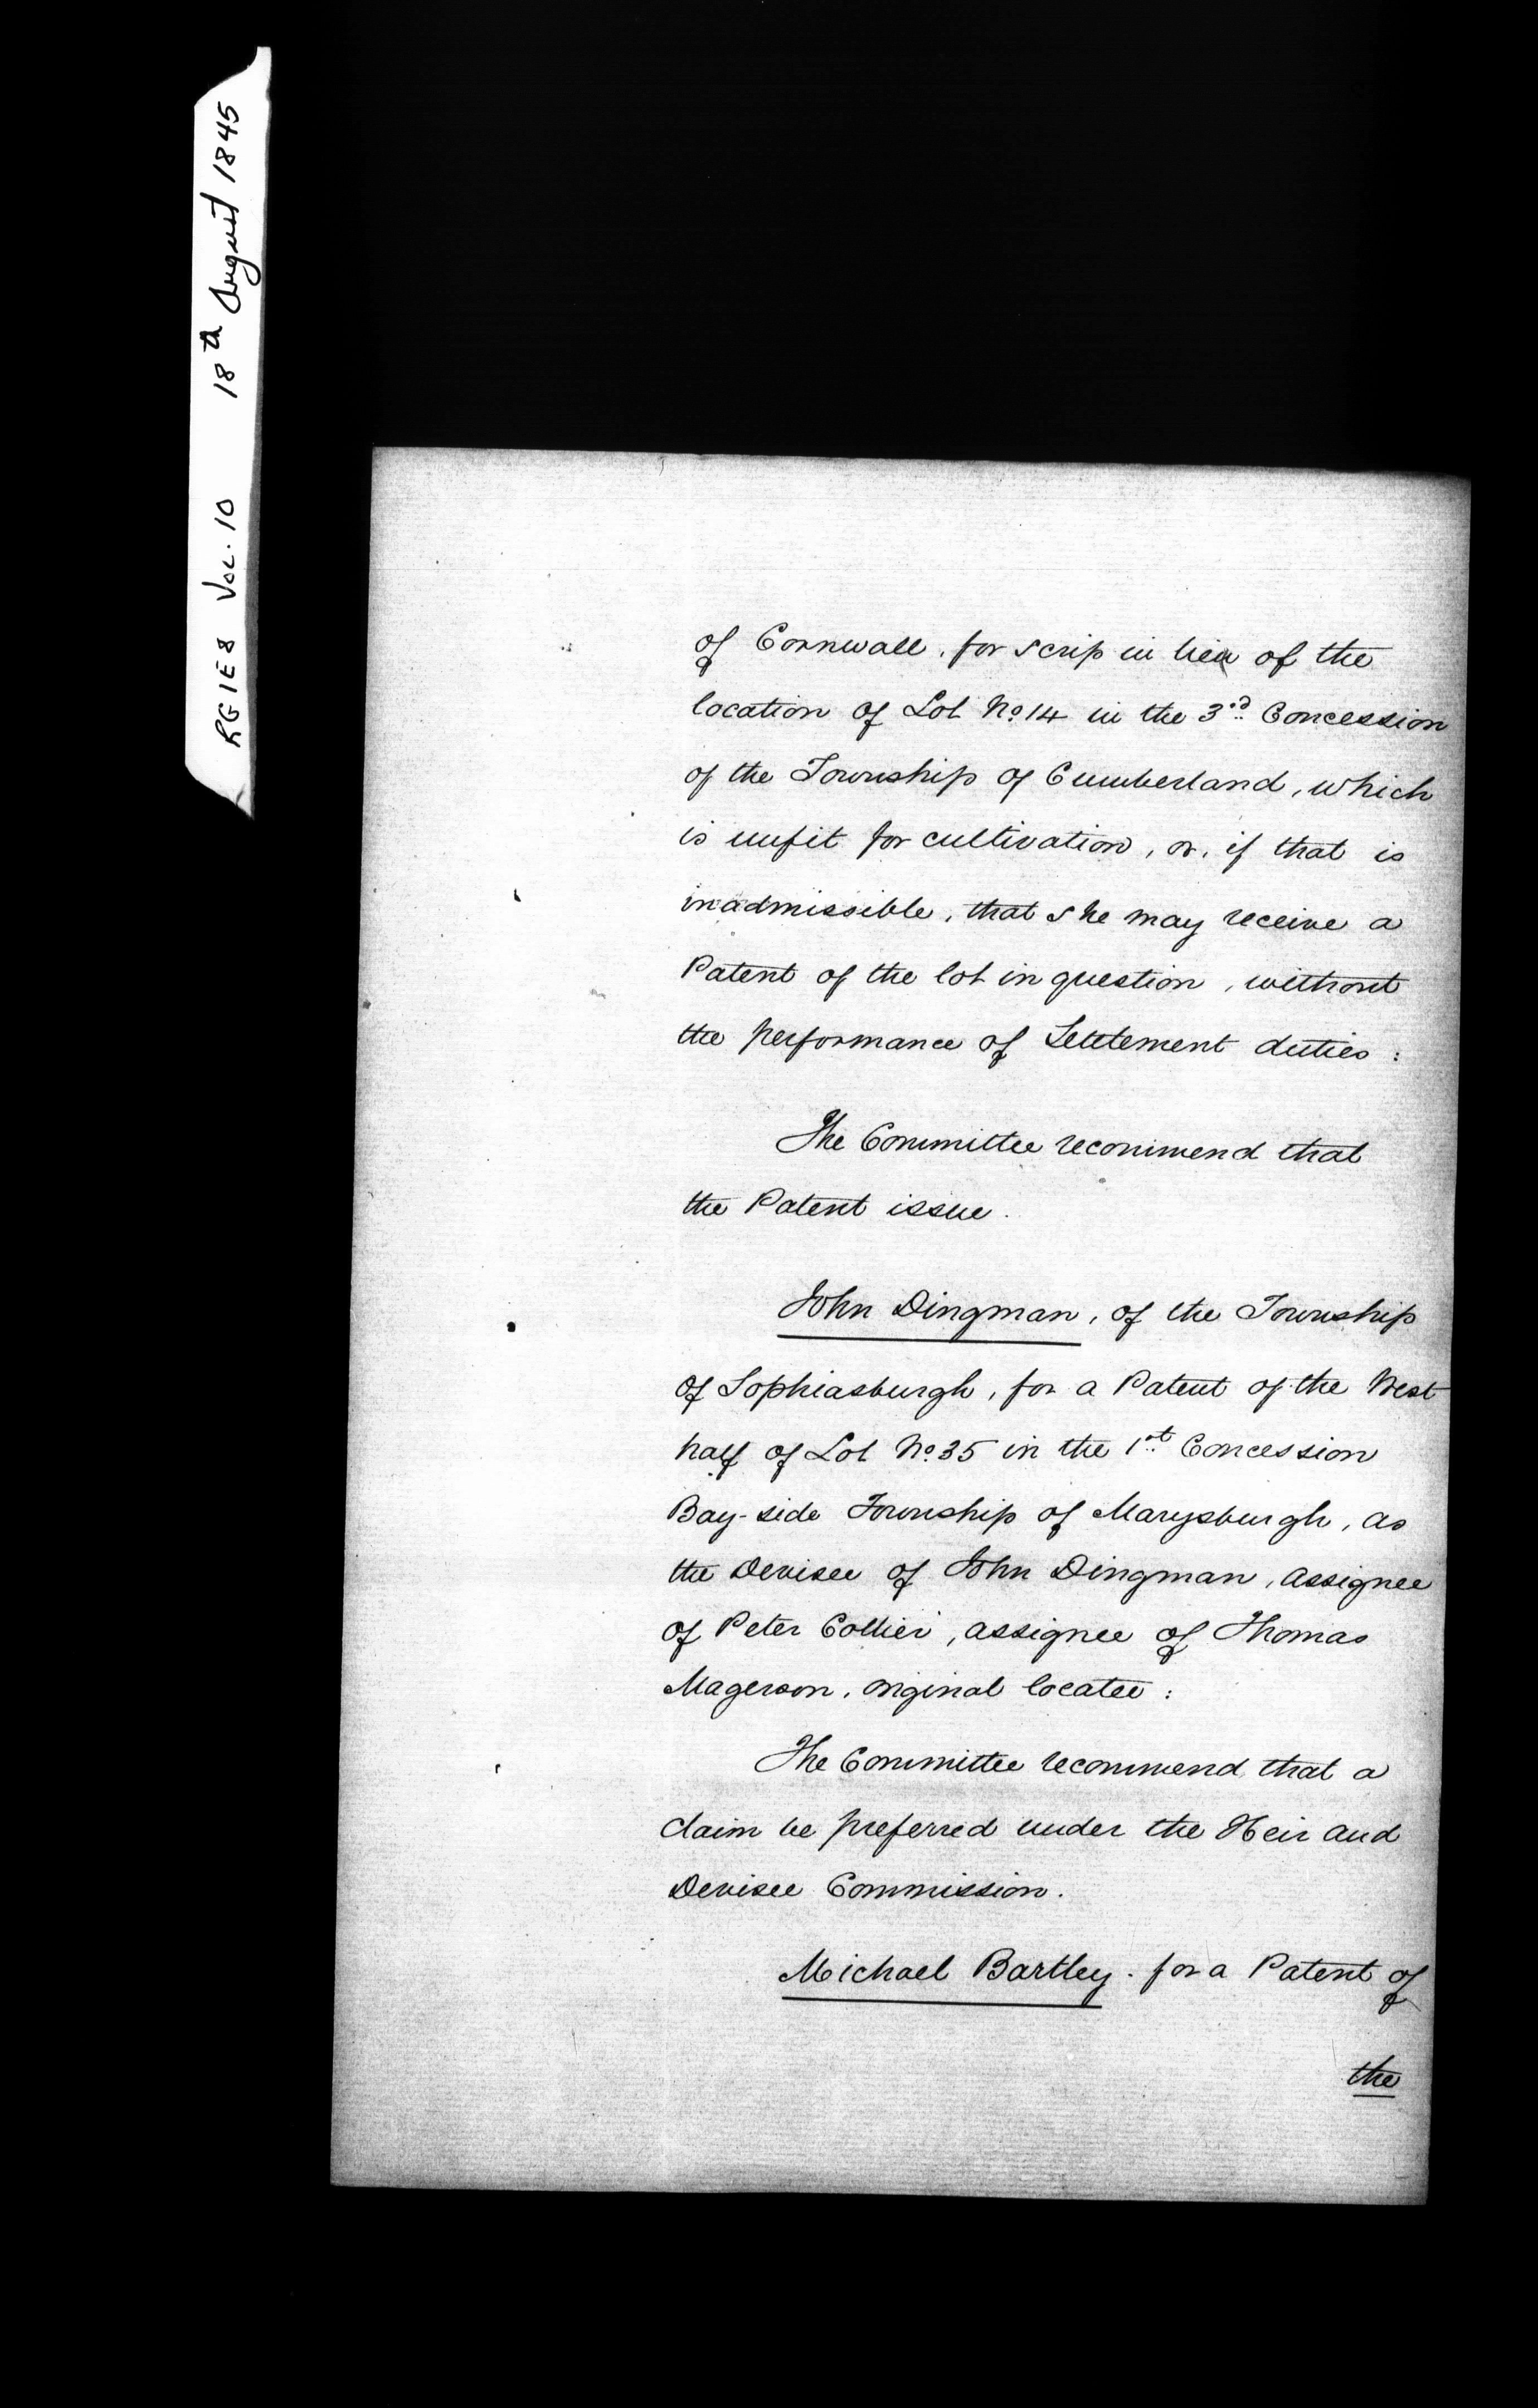 RG1E8 Vol. 10 18th August 1845
of Cornwall, for scrip in lieu of the
location of Lot No. 14 in the 3rd Concession
of the Township of Cumberland, which
is unfit for cultivation, or, if that is
inadmissible, that she may receive a
Patent of the lot in question, without
the performance of Settlement duties:
The Committee recommend that
the Patent issue.
John Dingman, of the Township
of Sophiasburgh, for a Patent of the West
half of Lot No. 35 in the 1st Concession
Bay-side Township of Marysburgh, as
the Devisee of John Dingman, assignee
of Peter Collier, assignee of Thomas
Magerson, original locatee:
The Committee recommend that a
claim be preferred under the Heir and
Devisee Commission.
Michael Bartley. for a Patent of
the